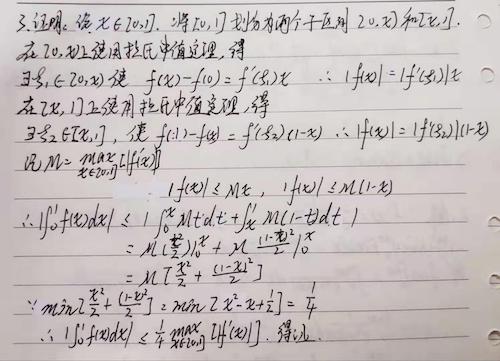 3.证明: 设 x∈[0,1]. 将[0,1]划分为两个子区间[0,x)和[x,1].
在[0,x)上使用拉氏中值定理,得
∃ξ₁∈[0,x)使 f(x)-f(0)=f'(ξ₁)x ∴|f(x)|=|f'(ξ₁)|x
在[x,1]上使用拉氏中值定理,得
∃ξ₂∈[x,1], 使 f(1)-f(x)=f'(ξ₂)(1-x) ∴|f(x)|=|f'(ξ₂)|(1-x)
记 M=max_{x∈[0,1]}[|f'(x)|]
|f(x)|≤Mx, |f(x)|≤M(1-x)
∴|∫₀¹f(x)dx| ≤ |∫₀ˣMtdt+∫ₓ¹M(1-t)dt|
=M(x²/2)|₀ˣ+M(1-x)²/2|₀ˣ
=M[x²/2+(1-x)²/2]
∵min[x²/2+(1-x)²/2]=min[x²-x+1/2]=1/4
∴|∫₀¹f(x)dx|≤1/4 max_{x∈[0,1]}[|f'(x)|]. 得证.